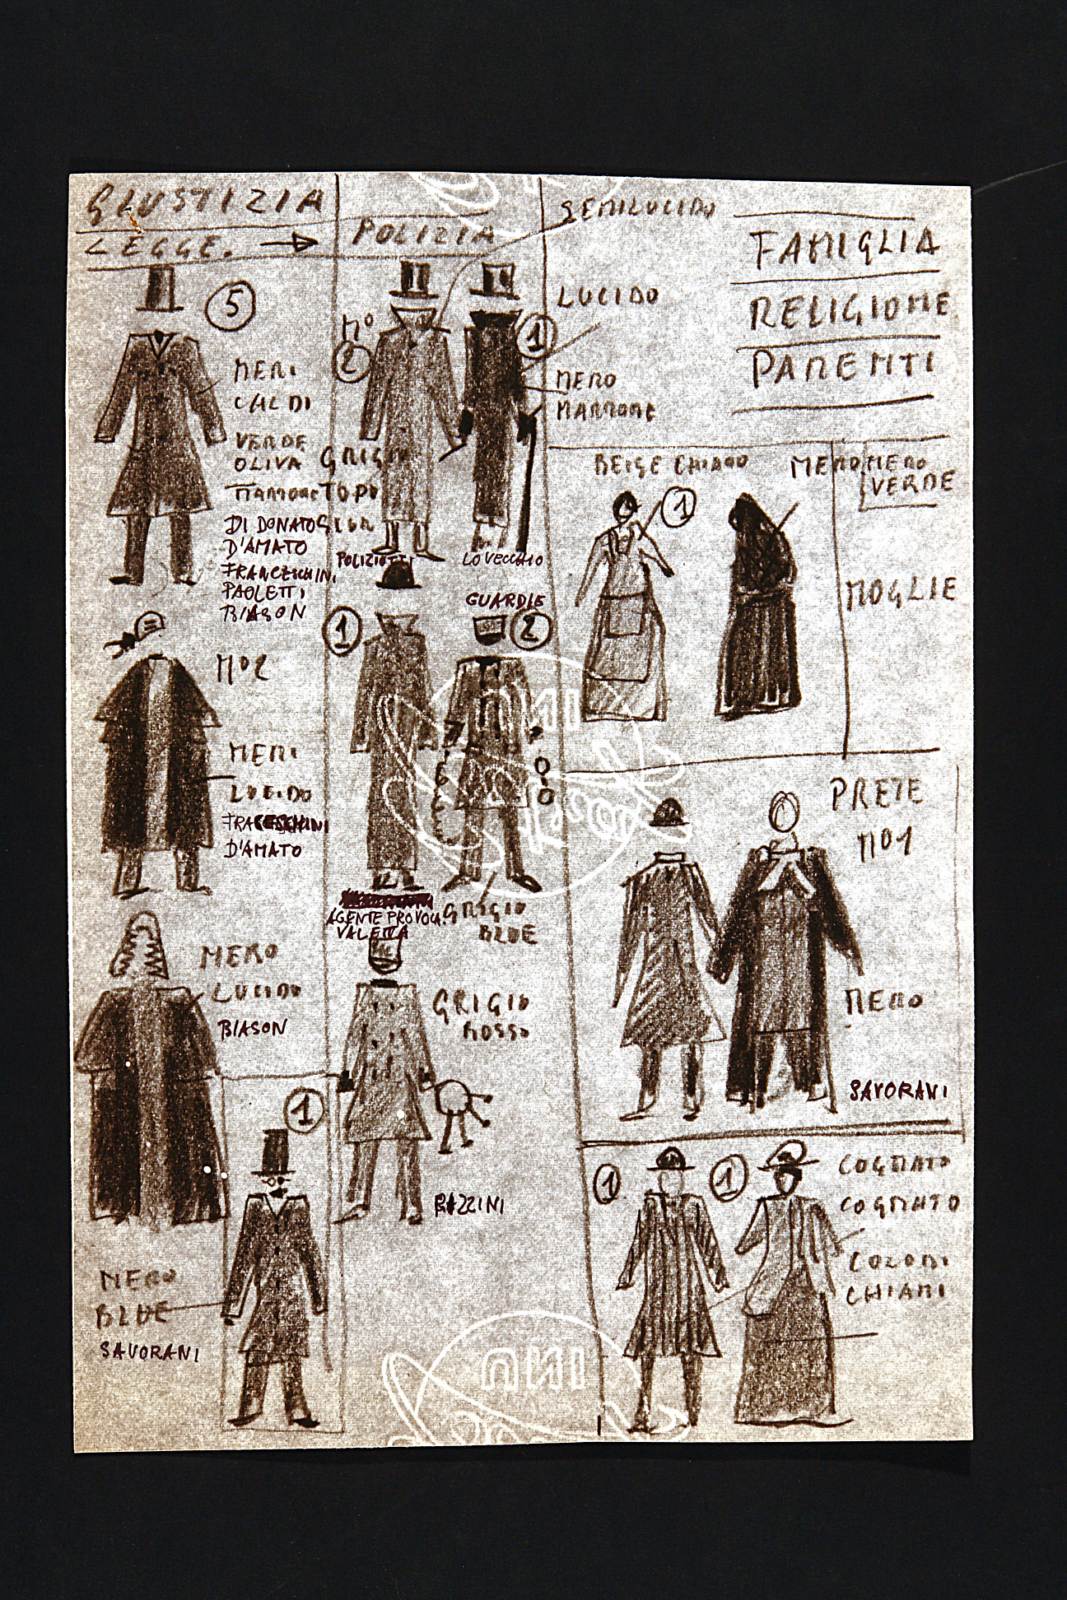 GIUSTIZIA
LEGGE. →
5
NERI
CALDI
VERDE
OLIVA
MARRONE
DI DONATO
D'AMATO
FRANCESCHINI
PAOLETTI
BIASON
N°2
NERI
LUCIDO
D'AMATO
NERO
LUCIDO
BIASON
1
NERO
BLUE
SAVORANI
POLIZIA
N°
2
1
GRIGIO
TOPO
LO VECCHIO
GUARDIE
1
2
AGENTE PROVOCA.
GRIGIO
BLUE
GRIGIO
ROSSO
BAZZINI
SEMILUCIDO
LUCIDO
NERO
MARRONE
FAMIGLIA
RELIGIONE
PARENTI
BEIGE CHIARO
1
NERO
VERDE
MOGLIE
PRETE
N°1
NERO
SAVORANI
1
1
COGNATO
COGNATO
COLORI
CHIARI